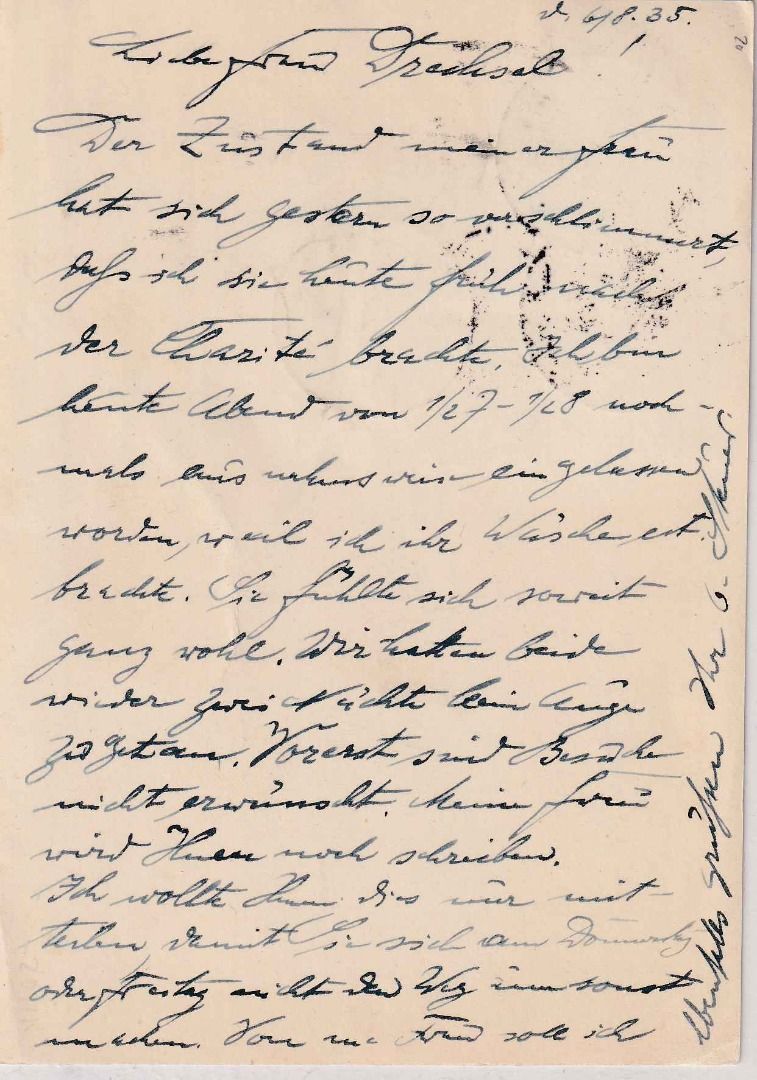 d. 6/8.35.
Liebe Frau Drechsel!
Der Zustand meiner Frau
hat sich gestern so verschlimmert,
daß ich sie heute früh nach
der Charité brachte. Ich bin
heute Abend von 1/27-1/28 noch-
mals ausnahmsweise eingelassen
worden, weil ich ihr Wäsche ect.
brachte. Sie fühlte sich soweit
ganz wohl. Wir hatten beide
wieder zwei Nächte kein Auge
zugetan. Vorerst sind Besuche
nicht erwünscht. Meine Frau
wird Ihnen noch schreiben.
Ich wollte Ihnen dies nur mit-
teilen, damit Sie sich am Donnerstag
oder Freitag nicht den Weg umsonst
machen. Von Frau soll ich
Ebenfalls grüßen Ihr